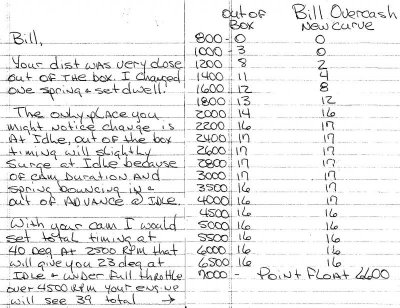 Bill,
Your dist was very close
out of the box. I changed
one spring & set dwell!
The only place you
might notice change is
At Idle, out of the box
timing will slightly
Surge at Idle because
of cam duration and
spring bouncing in &
out of ADVANCE @ Idle.
With your cam I would
set total timing at
40 Deg At 2500 RPM that
will give you 23 deg at
IDLE & under full throttle
over 4500 RPM your engine
will see 39 total →
Out of Box
Bill Overcash
New curve
800 - 0 0
1000 - 3 0
1200 - 8 2
1400 - 11 4
1600 - 12 8
1800 - 13 12
2000 - 14 16
2200 - 16 17
2400 - 17 17
2600 - 17 17
2800 - 17 17
3000 - 17 17
3500 16 17
4000 - 16 17
4500 16 16
5000 - 16 16
5500 - 16 16
6000 - 16 16
6500 16 16
7000 - POINT FLOAT 6600